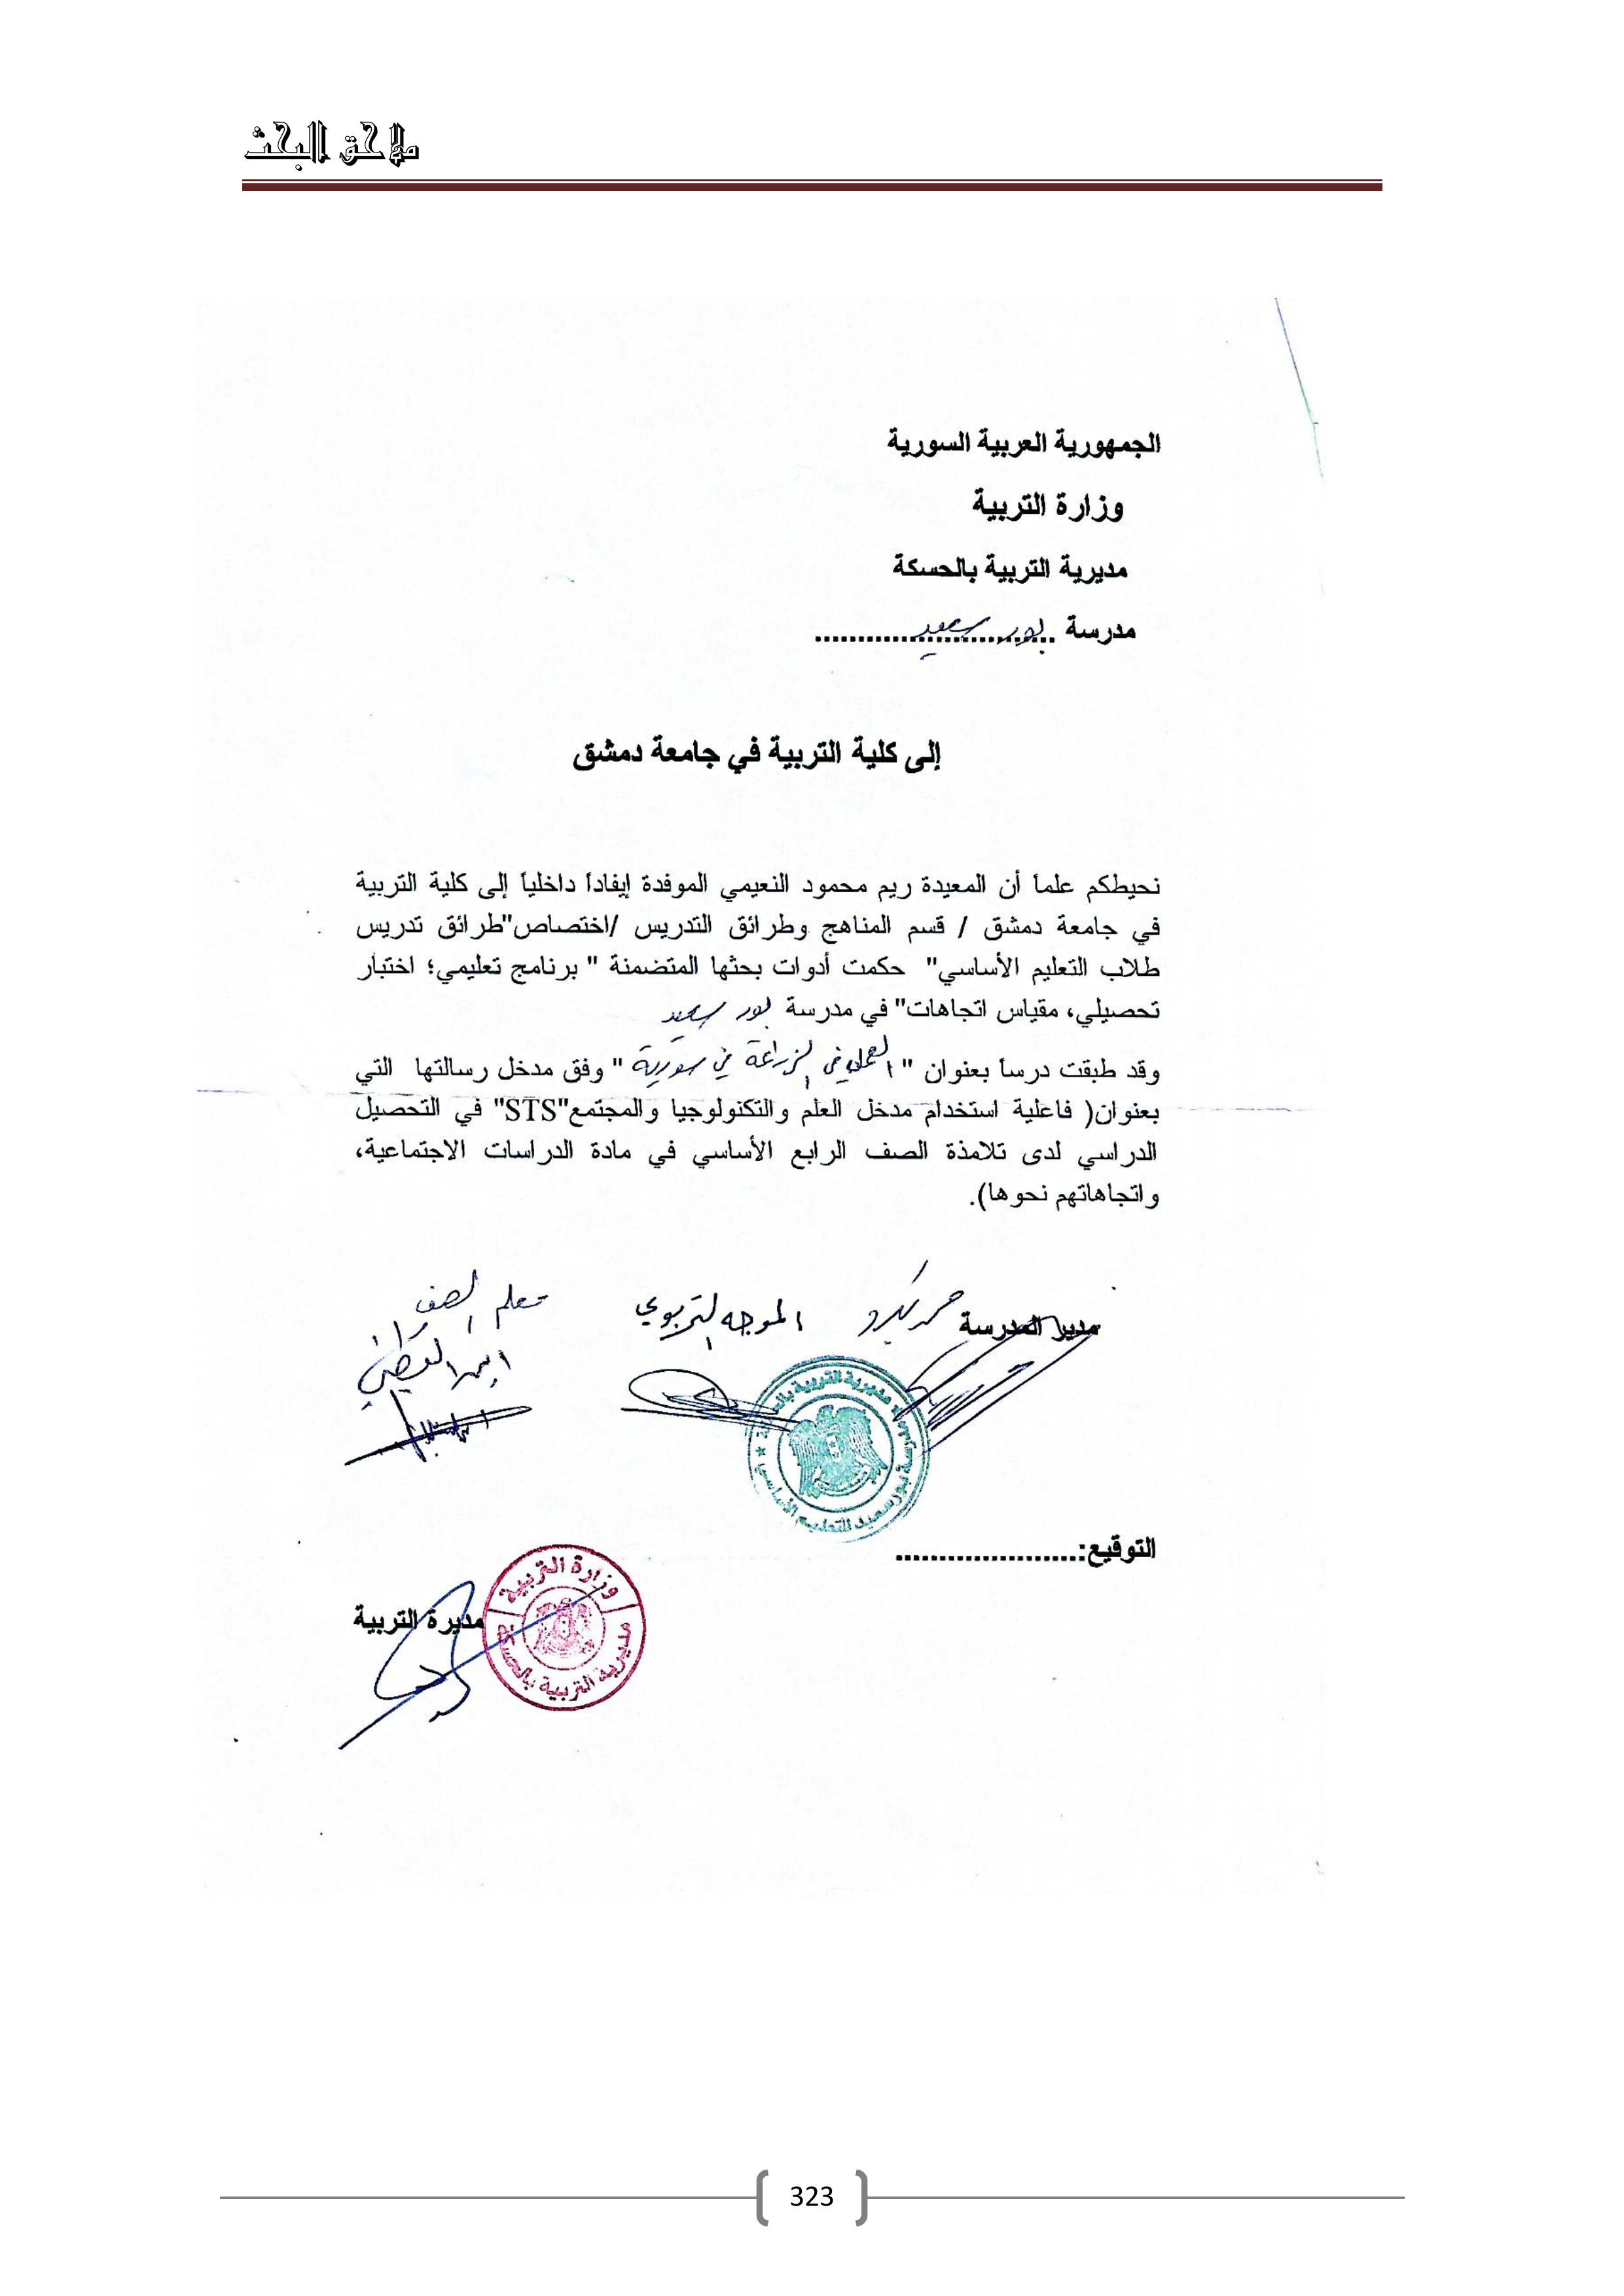 ملاحق البحث
الجمهورية العربية السورية
وزارة التربية
مديرية التربية بالحسكة
مدرسة بور سعيد
إلى كلية التربية في جامعة دمشق
نحيطكم علماً أن المعيدة ريم محمود النعيمي الموفدة إيفاداً داخلياً إلى كلية التربية
في جامعة دمشق / قسم المناهج وطرائق التدريس /اختصاص"طرائق تدريس
طلاب التعليم الأساسي" حكمت أدوات بحثها المتضمنة " برنامج تعليمي؛ اختبار
تحصيلي، مقياس اتجاهات" في مدرسة بور سعيد
وقد طبقت درساً بعنوان " الزراعة في سورية " وفق مدخل رسالتها التي
بعنوان( فاعلية استخدام مدخل العلم والتكنولوجيا والمجتمع"STS" في التحصيل
الدراسي لدى تلامذة الصف الرابع الأساسي في مادة الدراسات الاجتماعية،
واتجاهاتهم نحوها).
مدير المدرسة الموجه التربوي معلم الصف
مديرية التربية بالحسكة
مدرسة بور سعيد للتعليم الأساسي
التوقيع:......................
وزارة التربية
مديرية التربية بالحسكة
مديرة التربية
323